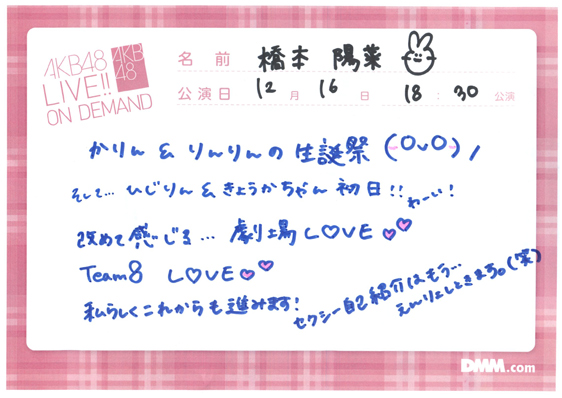 AKB48
LIVE!!
ON DEMAND
AKB
48
名前 橋本 陽菜
公演日 12月 16日 18:30 公演
かりん & りんりんの 生誕祭 (OvO) /
そして… ひじりん & きょうかちゃん 初日!! わーい!
改めて感じる… 劇場 L♡VE
Team8 L♡VE
私らしくこれからも進みます!
セクシー自己紹介はもう…
えんりょしときます。(笑)
DMM.com